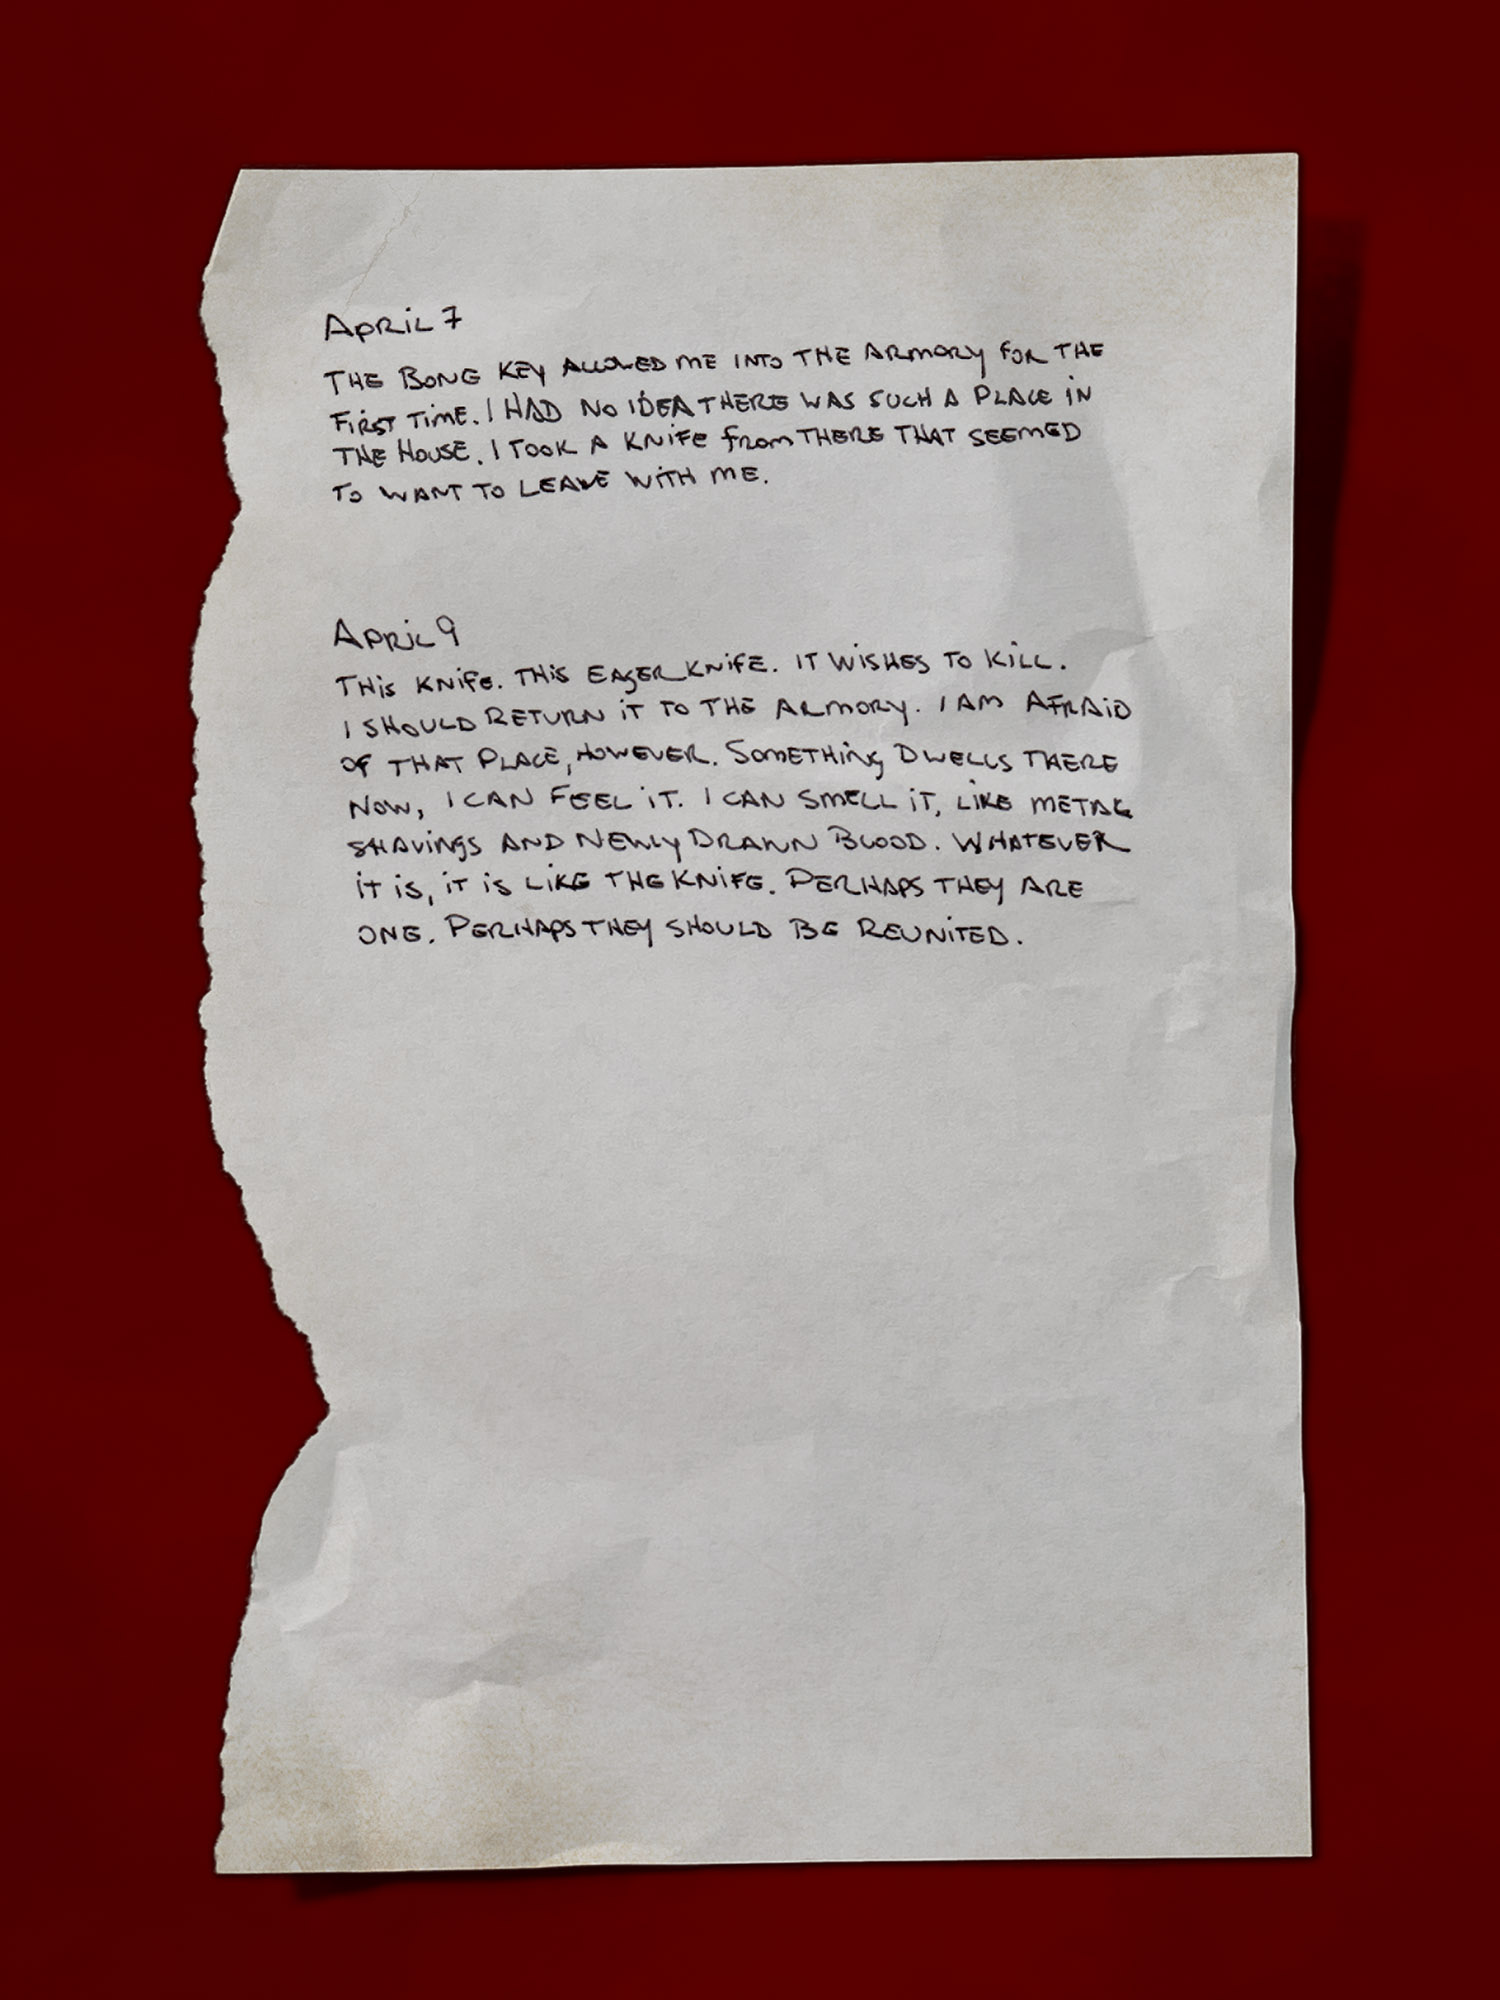 April 7
THE BONE KEY ALLOWED ME INTO THE ARMORY FOR THE
FIRST TIME. I HAD NO IDEA THERE WAS SUCH A PLACE IN
THE HOUSE. I TOOK A KNIFE from THERE THAT SEEMED
TO WANT TO LEAVE WITH ME.
April 9
THIS KNIFE. THIS EAGER KNIFE. IT WISHES TO KILL.
I SHOULD RETURN IT TO THE ARMORY. I AM AFRAID
OF THAT PLACE, HOWEVER. SOMETHING DWELLS THERE
NOW, I CAN FEEL IT. I CAN SMELL IT, LIKE METAL
SHAVINGS AND NEWLY DRAWN BLOOD. WHATEVER
IT IS, IT IS LIKE THE KNIFE. PERHAPS THEY ARE
ONE. PERHAPS THEY SHOULD BE REUNITED.